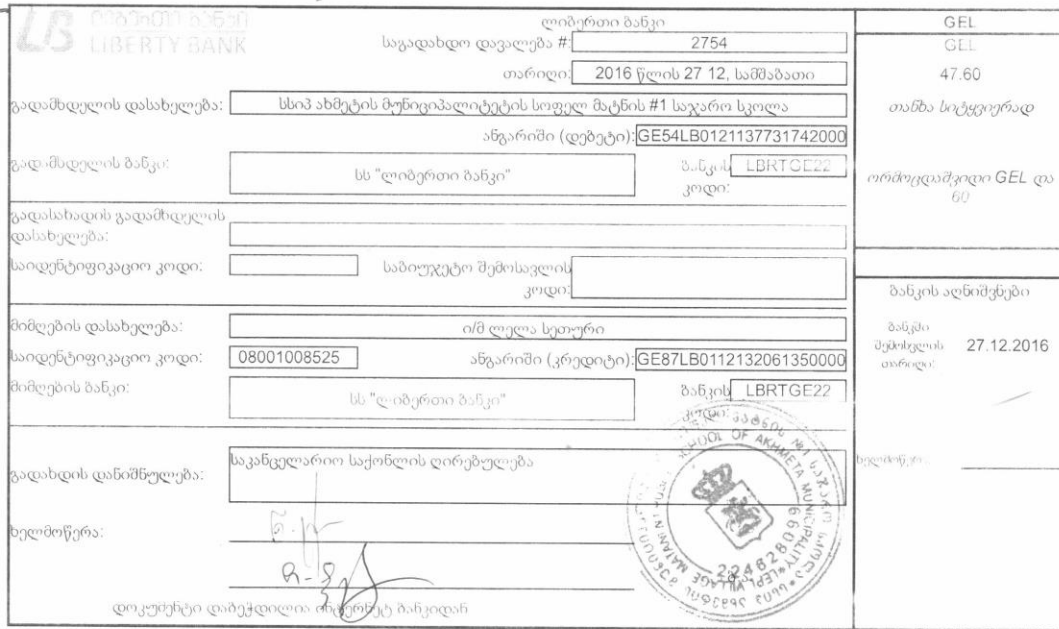 ლიბერთი ბანკი
LIBERTY BANK
ლიბერთი ბანკი
საგადახდო დავალება #: 2754
თარიღი: 2016 წლის 27 12, სამშაბათი
გადამხდელის დასახელება: სსიპ ახმეტის მუნიციპალიტეტის სოფელ მატნის #1 საჯარო სკოლა
ანგარიში (დებეტი): GE54LB0121137731742000
გადამხდელის ბანკი: სს "ლიბერთი ბანკი" ბანკის კოდი: LBRTGE22
გადასახადის გადამხდელის დასახელება:
საიდენტიფიკაციო კოდი: საბიუჯეტო შემოსავლის კოდი:
მიმღების დასახელება: ი/მ ლელა სეთური
საიდენტიფიკაციო კოდი: 08001008525 ანგარიში (კრედიტი): GE87LB0112132061350000
მიმღების ბანკი: სს "ლიბერთი ბანკი" ბანკის კოდი: LBRTGE22
გადახდის დანიშნულება: საკანცელარიო საქონლის ღირებულება
ხელმოწერა:
დოკუმენტი დაბეჭდილია ინტერნეტ ბანკიდან
GEL
GEL
47.60
თანხა სიტყვიერად
ორმოცდაშვიდი GEL და
60
ბანკის აღნიშვნები
ბანკში
შემოსვლის
თარიღი:
27.12.2016
ხელმოწერა:
SCHOOL OF AKHMETA MUNICIPALITY
LEPL VILLAGE MATANI N1
224628099